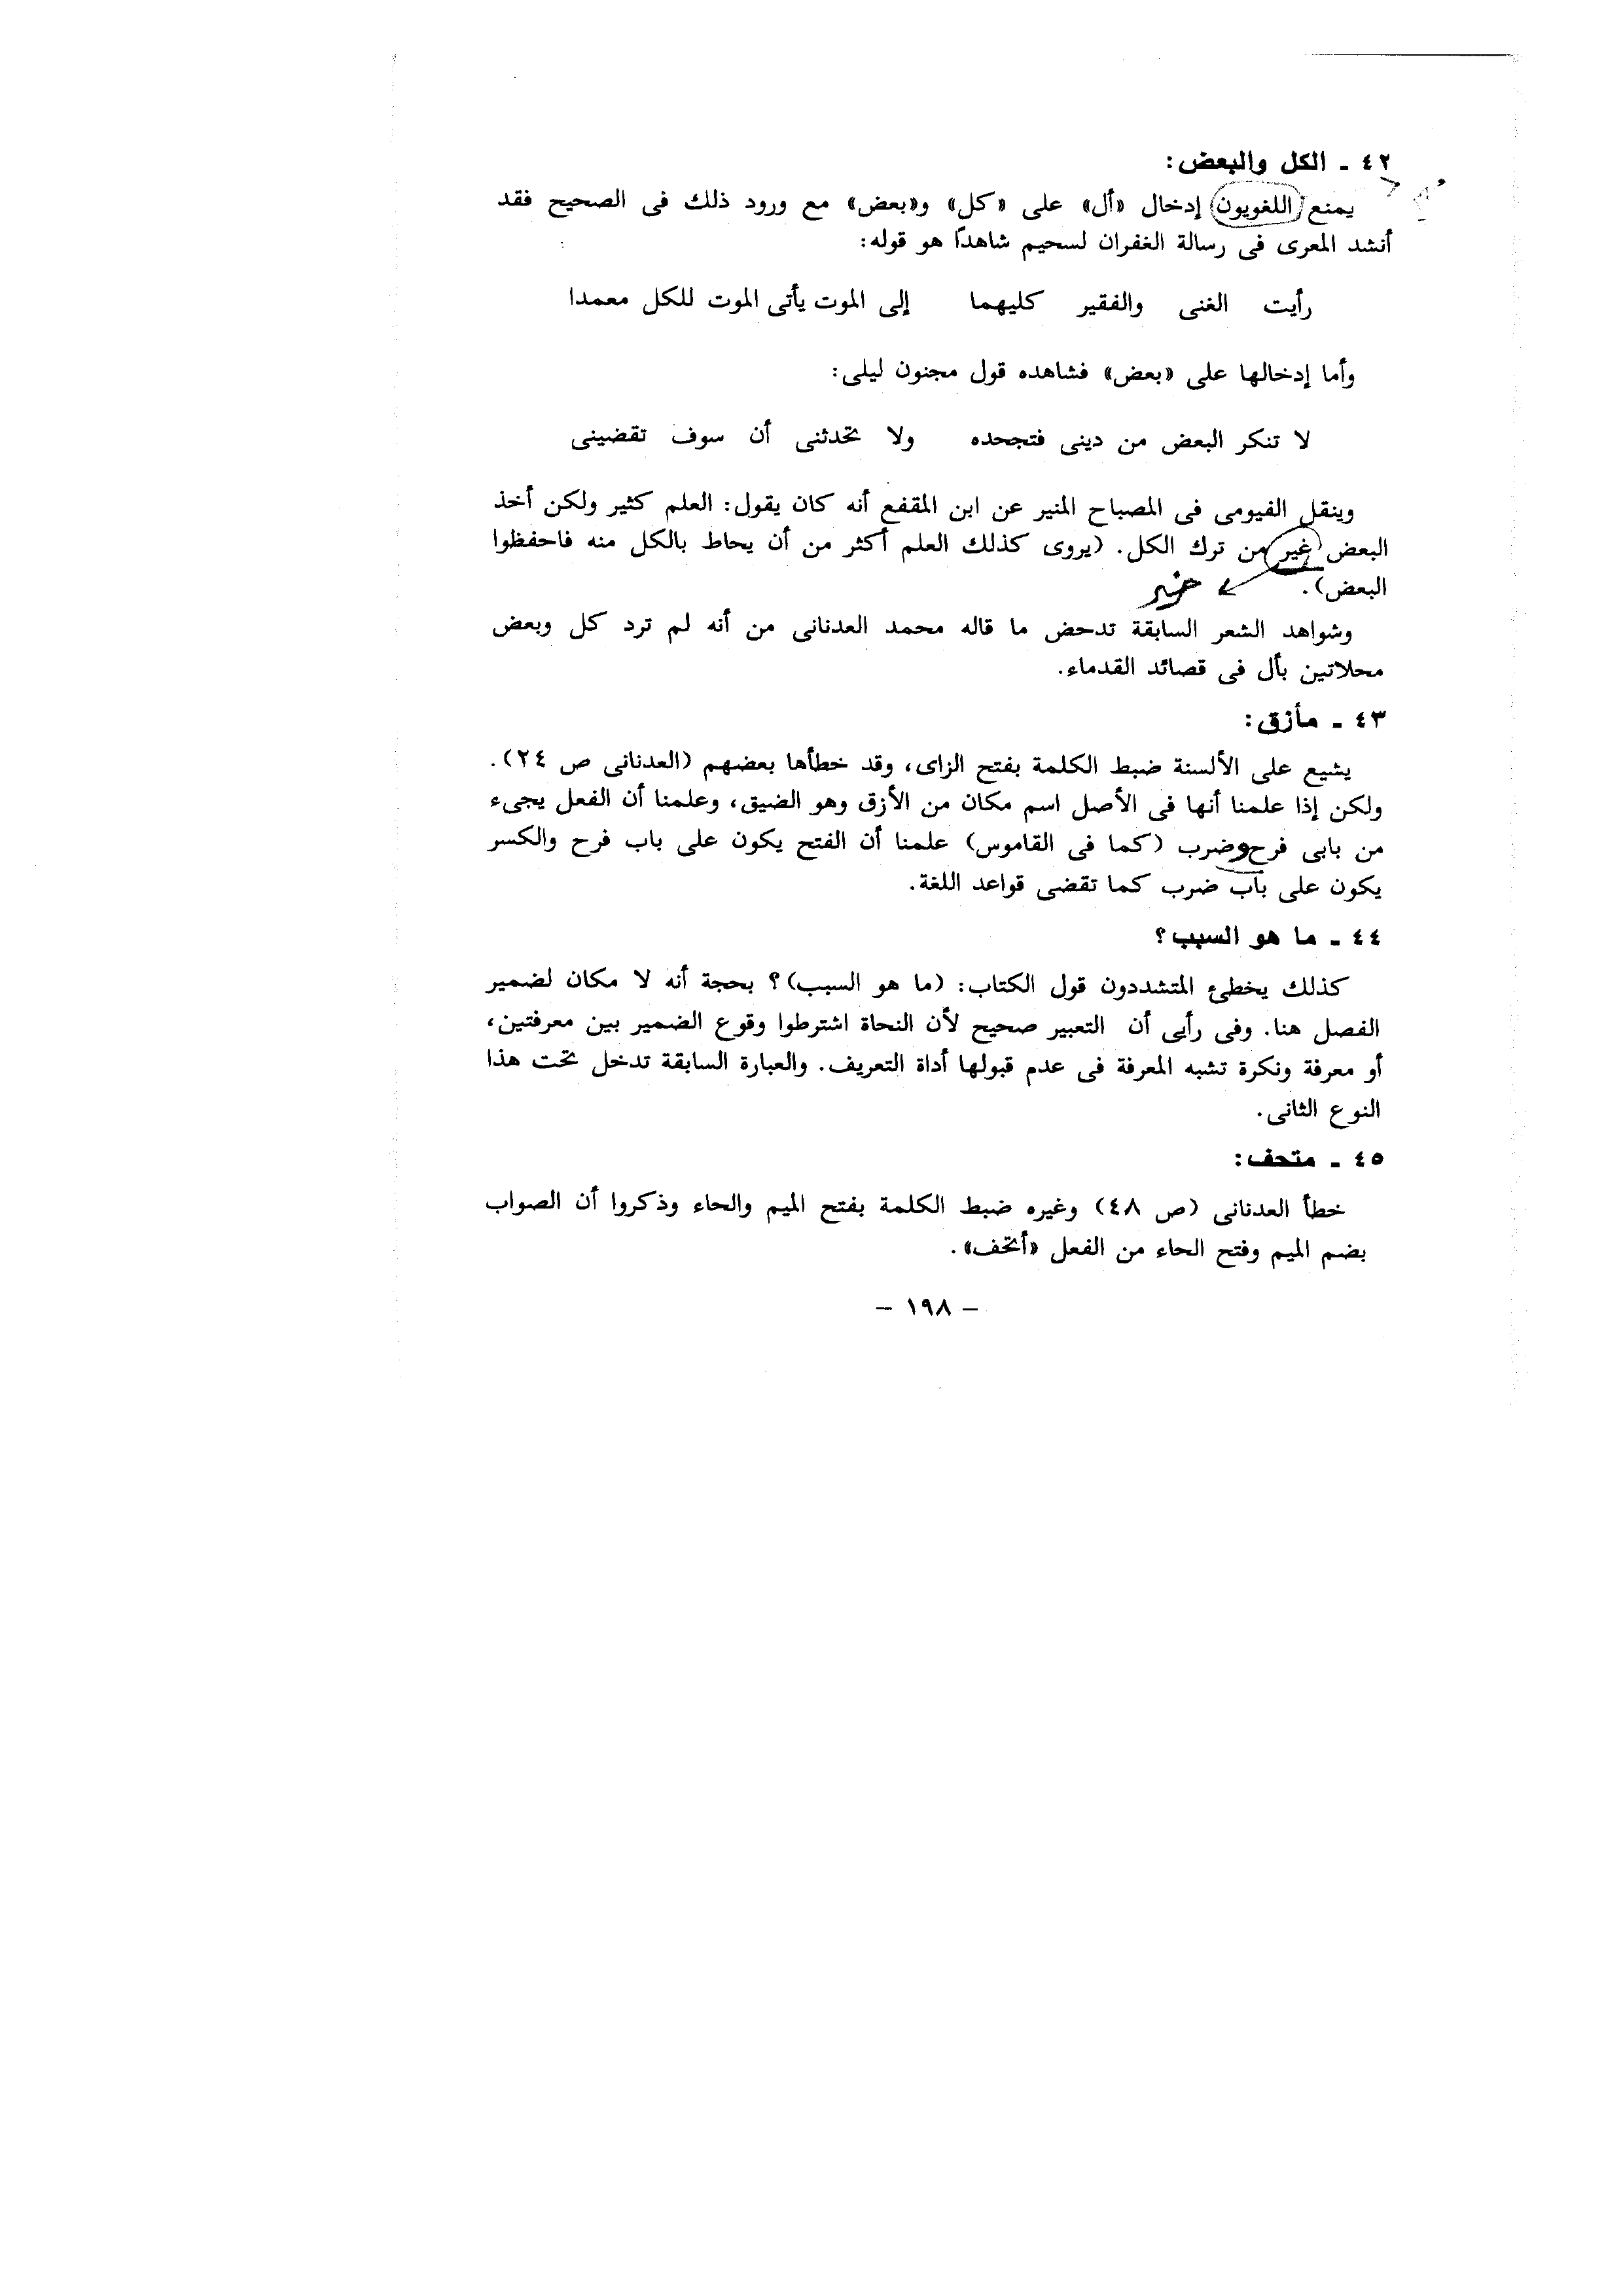 ٤٢ ـ الكل والبعض:
يمنع اللغويون إدخال «أل» على «كل» و«بعض» مع ورود ذلك فى الصحيح فقد
أنشد المعرى فى رسالة الغفران لسحيم شاهدًا هو قوله:
رأيت الغنى والفقير كليهما إلى الموت يأتى الموت للكل معمدا
وأما إدخالها على «بعض» فشاهده قول مجنون ليلى:
لا تنكر البعض من دينى فتجحده ولا تحدثنى أن سوف تقضينى
وينقل الفيومى فى المصباح المنير عن ابن المقفع أنه كان يقول: العلم كثير ولكن أخذ
البعض غير من ترك الكل. (يروى كذلك العلم أكثر من أن يحاط بالكل منه فاحفظوا
البعض).
خير
وشواهد الشعر السابقة تدحض ما قاله محمد العدنانى من أنه لم ترد كل وبعض
محلاتين بأل فى قصائد القدماء.
٤٣ ـ مأزق:
يشيع على الألسنة ضبط الكلمة بفتح الزاى، وقد خطأها بعضهم (العدنانى ص ٢٤).
ولكن إذا علمنا أنها فى الأصل اسم مكان من الأزق وهو الضيق، وعلمنا أن الفعل يجىء
من بابى فرح وضرب (كما فى القاموس) علمنا أن الفتح يكون على باب فرح والكسر
يكون على باب ضرب كما تقضى قواعد اللغة.
٤٤ ـ ما هو السبب؟
كذلك يخطئ المتشددون قول الكتاب: (ما هو السبب)؟ بحجة أنه لا مكان لضمير
الفصل هنا. وفى رأيى أن التعبير صحيح لأن النحاة اشترطوا وقوع الضمير بين معرفتين،
أو معرفة ونكرة تشبه المعرفة فى عدم قبولها أداة التعريف. والعبارة السابقة تدخل تحت هذا
النوع الثانى.
٤٥ ـ متحف:
خطأ العدنانى (ص ٤٨) وغيره ضبط الكلمة بفتح الميم والحاء وذكروا أن الصواب
بضم الميم وفتح الحاء من الفعل «أتحف».
– ١٩٨ –